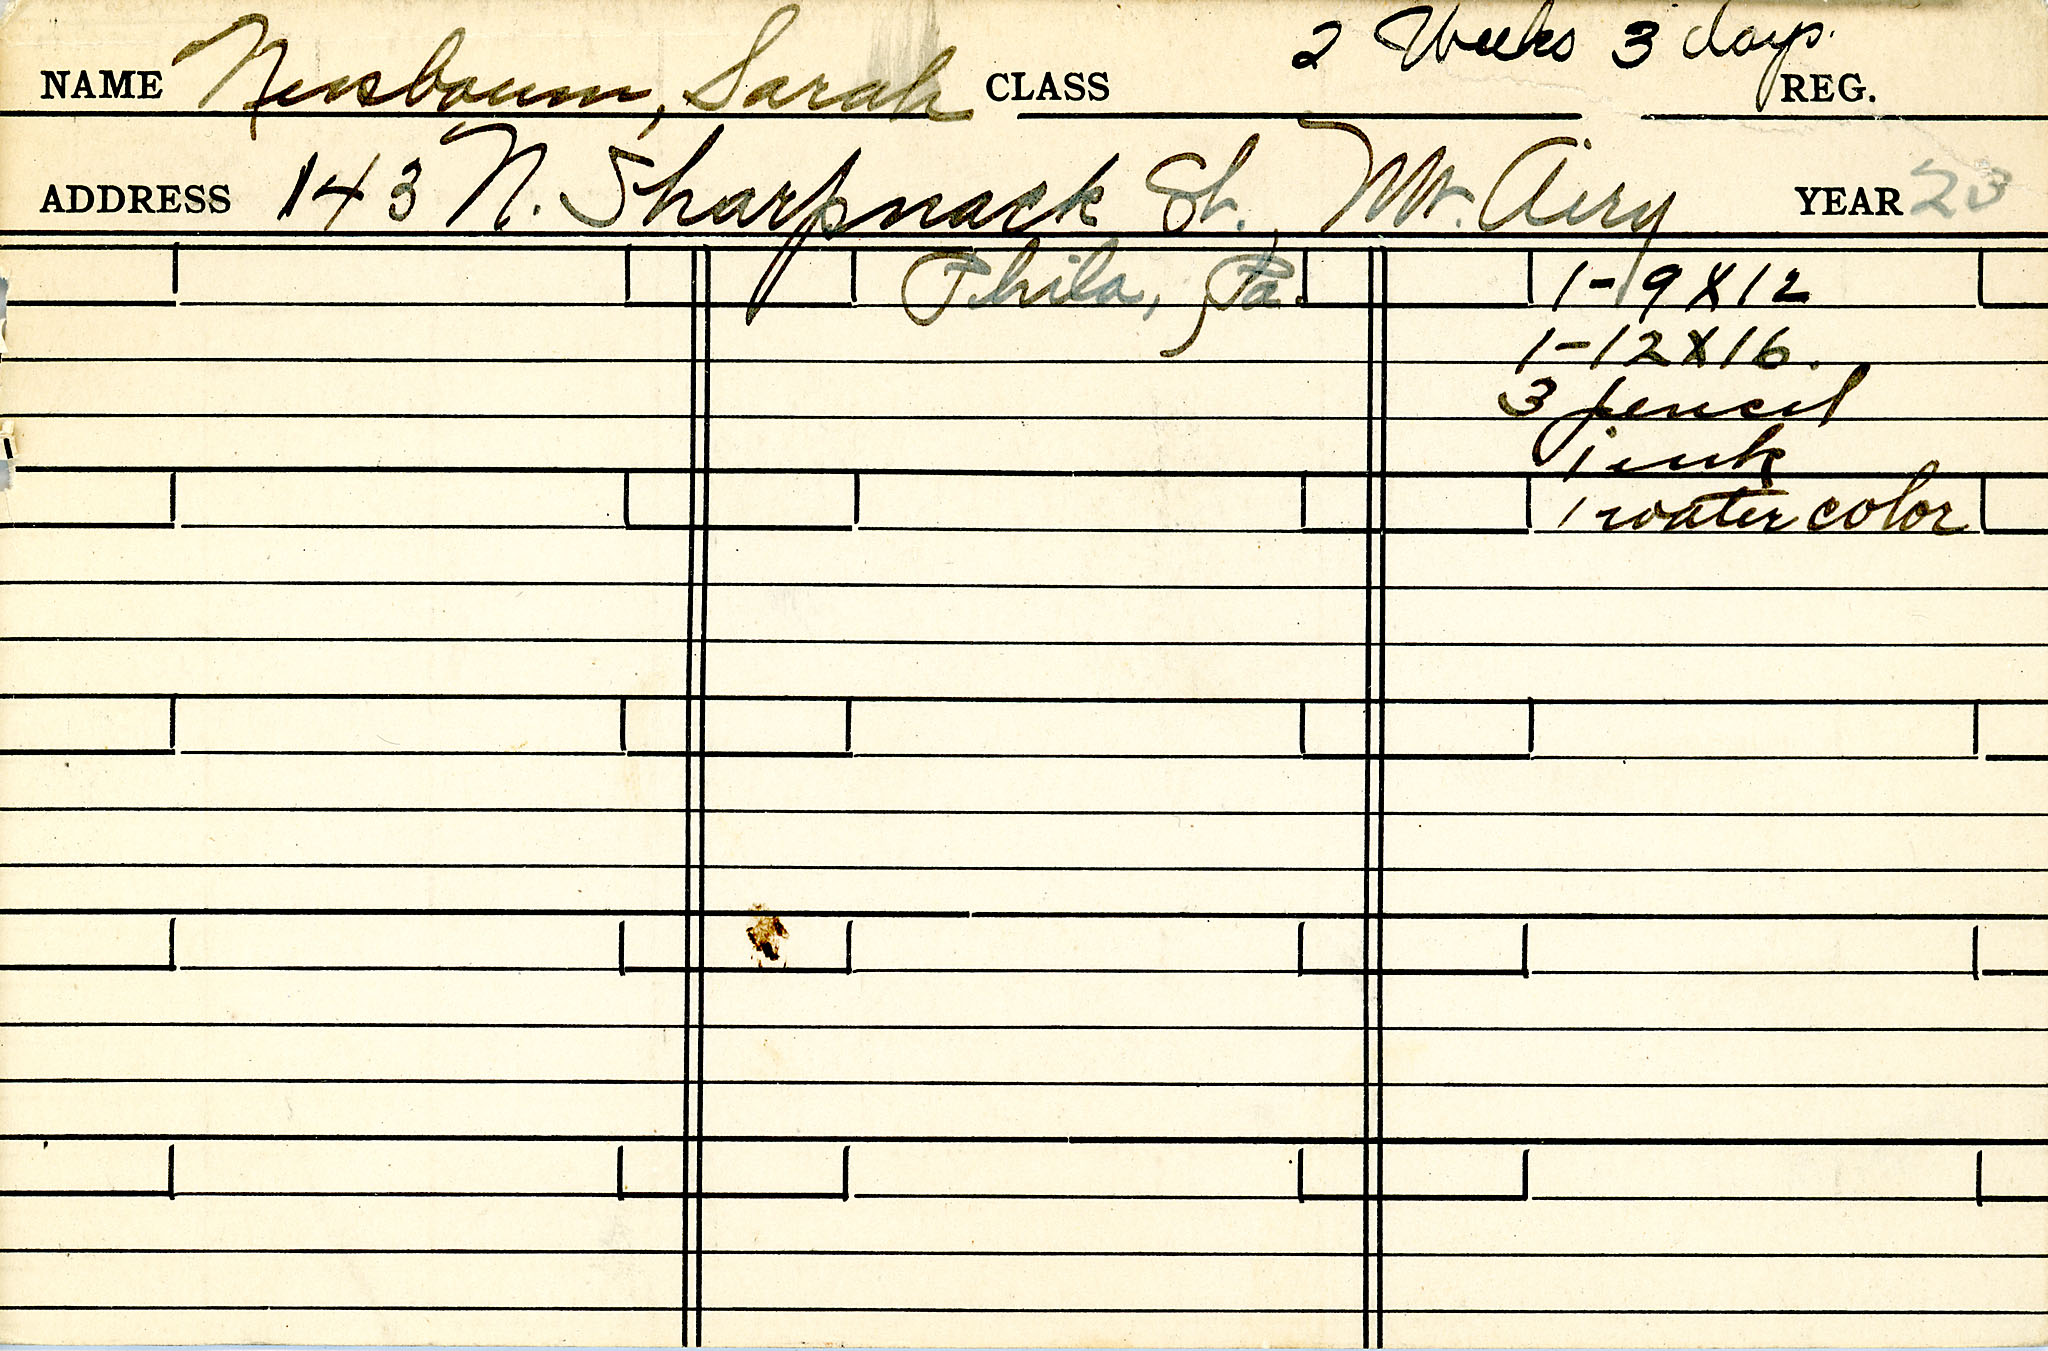 NAME Nusbaum, Sarah CLASS 2 Weeks 3 days. REG.
ADDRESS 143 N. Sharpnack St., Mt. Airy YEAR 23
Phila, Pa. 1-9X12
1-12X16.
3 pencil
1 ink
1 water color